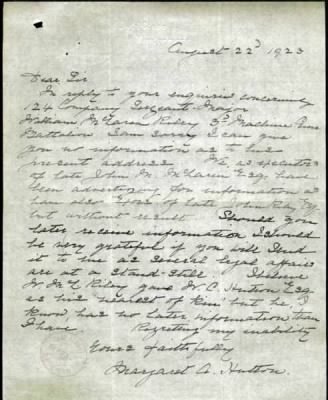 August 22d 1923
Dear Sir
In reply to your enquiries concerning
124 Company Sergeant Major
William McLaren Riley 3d Machine Gun
Battalion I am sorry I can give
you no information as to his
present address. We as executors
of late John M. McLaren Esq. have
been advertising for information as
to late John
but without result Should you
later receive information I should
be very grateful if you will send
it to me as several legal affairs
are at a stand-still I believe
W McL Riley gave W. C. Hutton Esq.
as his nearest of kin but he, I
know has no later information than
I have. Regretting my inability
Yours faithfully
Margaret A. Hutton.